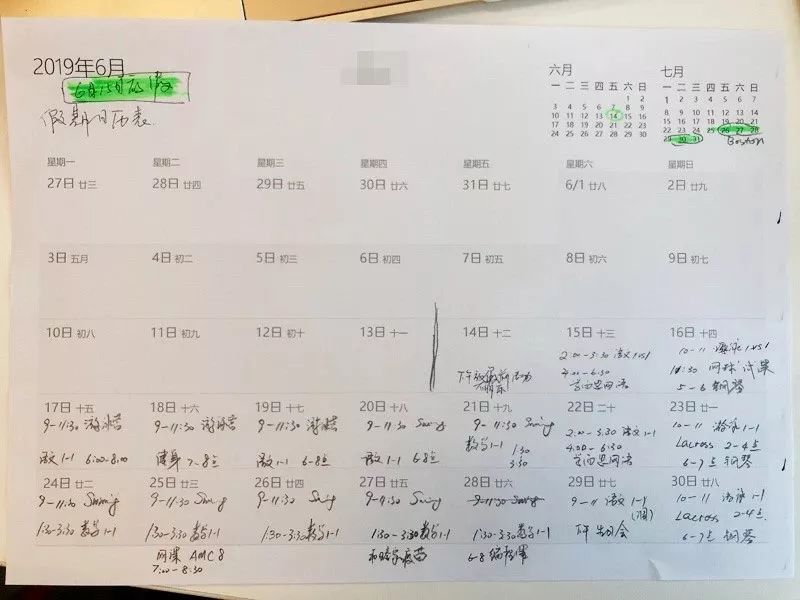 2019年6月
6月15日 放假
假期日历表
六月
一 二 三 四 五 六 日
1 2
3 4 5 6 7 8 9
10 11 12 13 14 15 16
17 18 19 20 21 22 23
24 25 26 27 28 29 30
七月
一 二 三 四 五 六 日
1 2 3 4 5 6 7
8 9 10 11 12 13 14
15 16 17 18 19 20 21
22 23 24 25 26 27 28
29 30 31
Boston
星期一 星期二 星期三 星期四 星期五 星期六 星期日
27日 廿三 28日 廿四 29日 廿五 30日 廿六 31日 廿七 6/1 廿八 2日 廿九
3日 五月 4日 初二 5日 初三 6日 初四 7日 初五 8日 初六 9日 初七
10日 初八 11日 初九 12日 初十 13日 十一 14日 十二 15日 十三 16日 十四
下午 活动
2:00-3:30 语文 1vs1
4:00-6:30
学而思网课
10-11 游泳 1vs1
网球
5-6 钢琴
17日 十五 18日 十六 19日 十七 20日 十八 21日 十九 22日 二十 23日 廿一
9-11:30 游泳营 9-11:30 游泳营 9-11:30 游泳营 9-11:30 Swing 9-11:30 Swing 2:00-3:30 语文 1-1 10-11 游泳 1-1
语文 1-1 6:00-8:00 健身 7-8点 语文 1-1 6-8点 语文 1-1 6-8点 数学 1-1 1:30 3:30 4:00-6:30 学而思网课 Lacross 2-4点
6-7点 钢琴
24日 廿二 25日 廿三 26日 廿四 27日 廿五 28日 廿六 29日 廿七 30日 廿八
9-11:30 Swimming 9-11:30 Swing 9-11:30 Swing 9-11:30 Swing 9-11:30 Swimming 9-11 语文 1-1 10-11 游泳 1-1
1:30-3:30 数学 1-1 1:30-3:30 数学 1-1 1:30-3:30 数学 1-1 1:30-3:30 数学 1-1 1:30-3:30 数学 1-1 下午 生日会 Lacross 2-4点
网课 AMC 8 疫苗 6-8 编程课 6-7点 钢琴
7:00-8:30